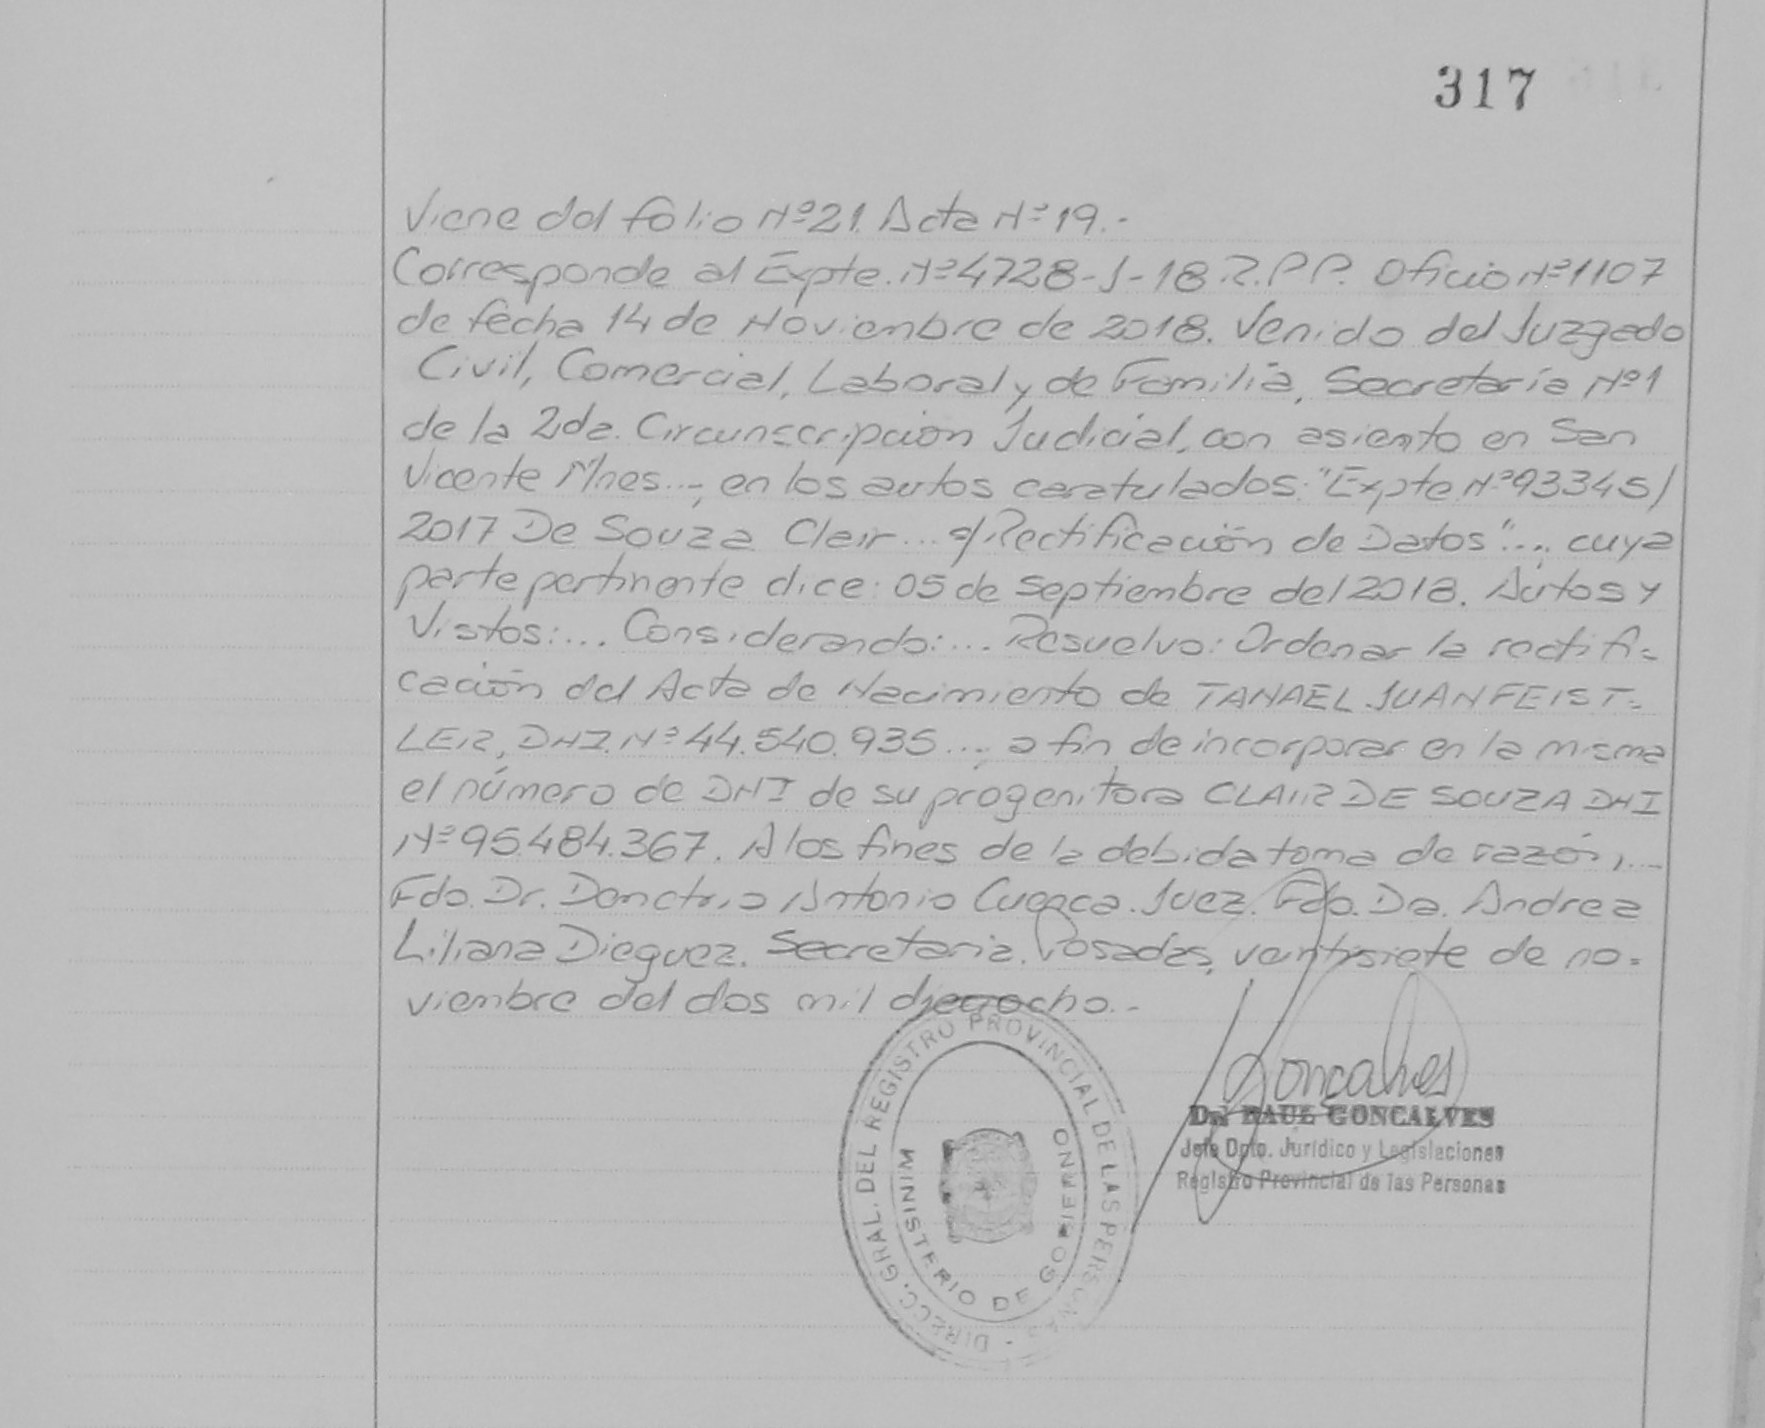 317
Viene del folio Nº21. Acta Nº19.-
Corresponde al Expte. Nº4728-J-18.R.P.P. Oficio Nº1107
de fecha 14 de Noviembre de 2018. Venido del Juzgado
Civil, Comercial, Laboral y de Familia, Secretaría Nº1
de la 2da. Circunscripción Judicial, con asiento en San
Vicente Mnes..-, en los autos caratulados: "Expte Nº93345/
2017 De Souza Clair... s/Rectificación de Datos"..., cuya
parte pertinente dice: 05 de Septiembre del 2018. Autos y
Vistos:... Considerando:... Resuelvo: Ordenar la rectifi-
cación del Acta de Nacimiento de TANAEL JUAN FEIST-
LER, DNI. Nº44.540.935..., a fin de incorporar en la misma
el número de DNI de su progenitora CLAIR DE SOUZA DNI
Nº95.484.367. A los fines de la debida toma de razón,...
Fdo. Dr. Demetrio Antonio Cuenca. Juez. Fdo. Da. Andrea
Liliana Dieguez. Secretaria. Posadas, veintisiete de no-
viembre del dos mil dieciocho.-
Goncalves
Dr. RAUL GONCALVES
Jefe Dpto. Jurídico y Legislaciones
Registro Provincial de las Personas
DIRECC. GRAL. DEL REGISTRO PROVINCIAL DE LAS PERSONAS -
MINISTERIO DE GOBIERNO